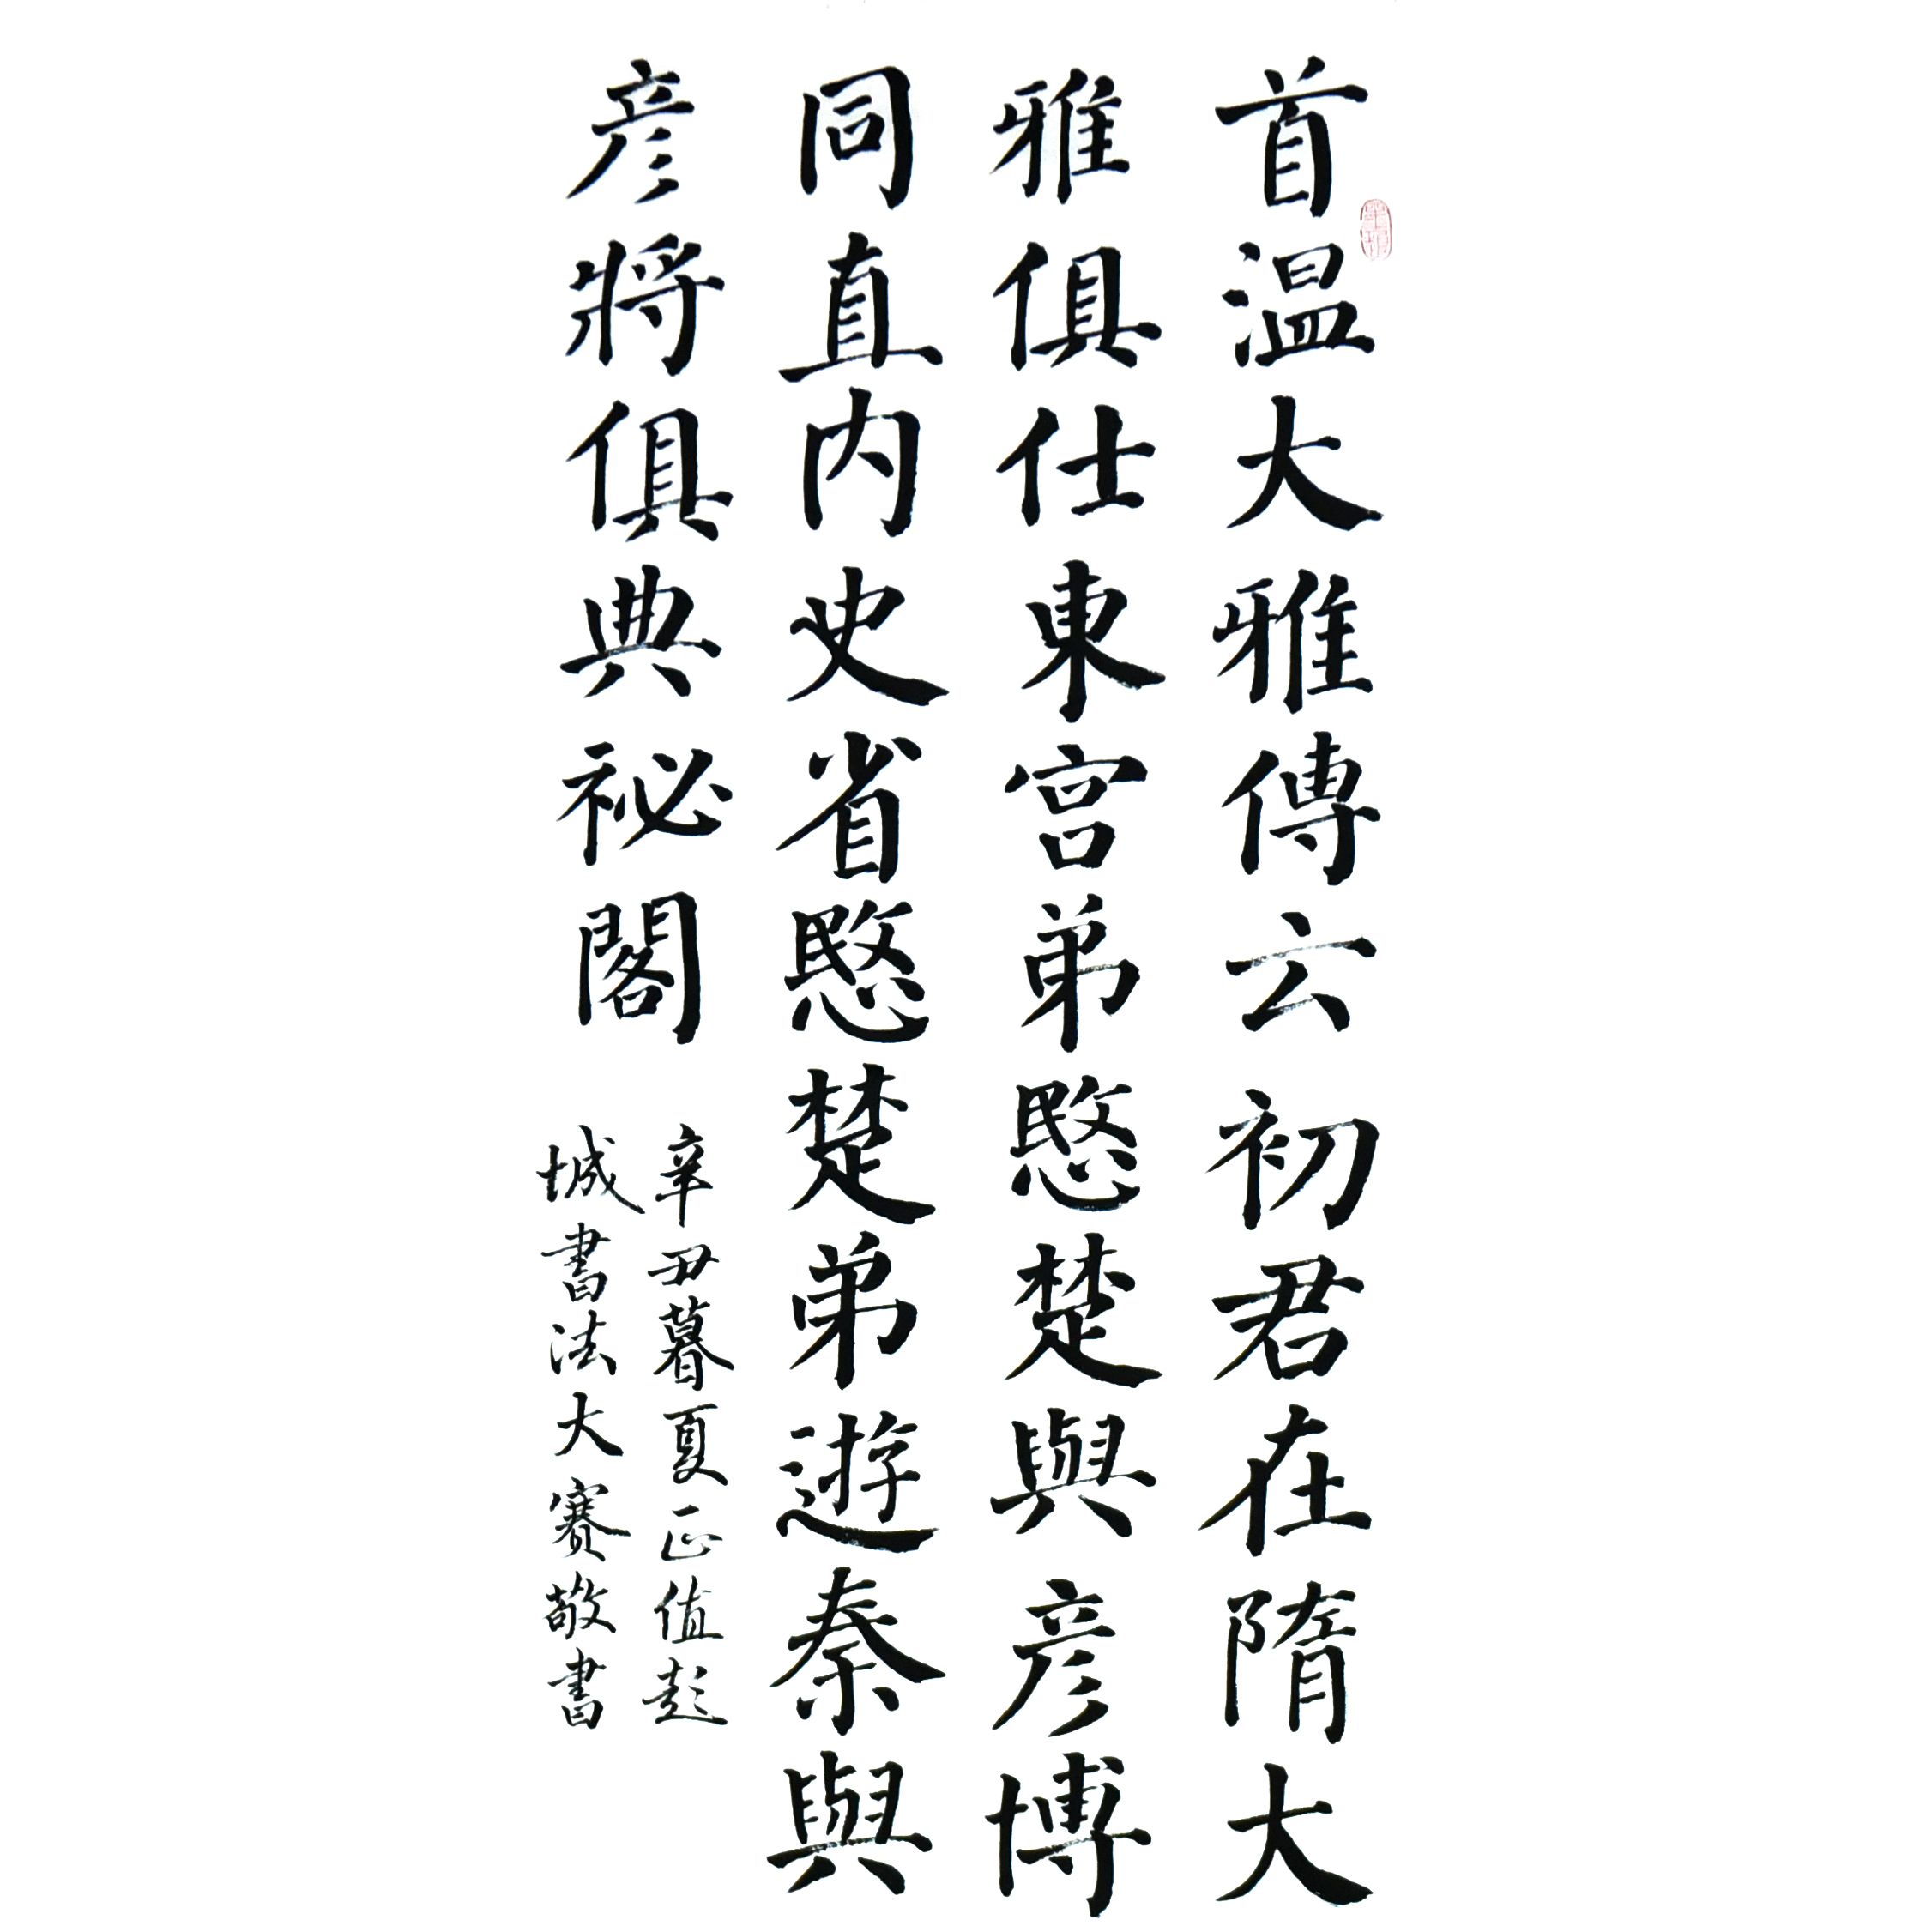 首温大雅傳云初君在隋大
雅俱仕東宮弟愍楚與彦博
同直内史省愍楚弟遊秦與
彦將俱典祕閣
辛丑暮夏正值
城書法大賽敬書